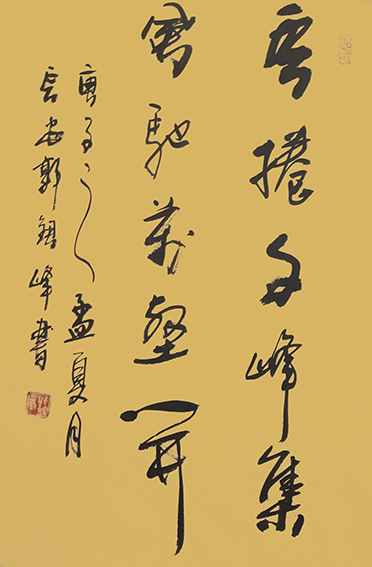 雲捲千峰集
風馳萬壑開
庚子之孟夏月
長安郭峰書